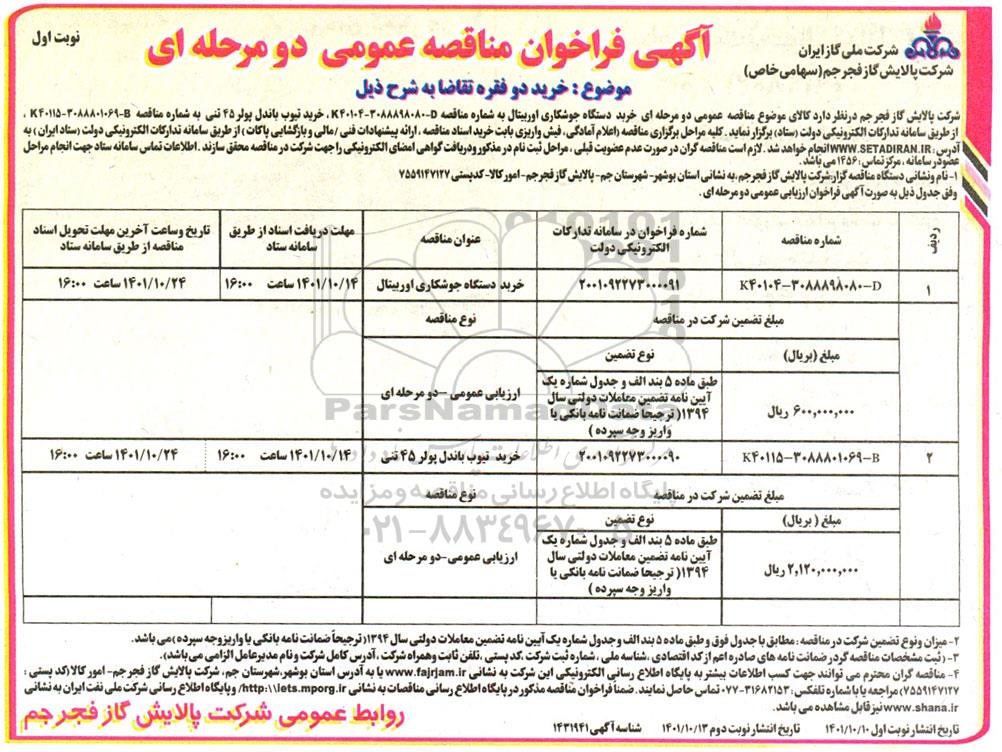 شرکت ملی گاز ایران
شرکت پالایش گاز فجر جم (سهامی خاص)
آگهی فراخوان مناقصه عمومی دو مرحله ای
نوبت اول
موضوع : خرید دو فقره تقاضا به شرح ذیل
شرکت پالایش گاز فجر جم درنظر دارد کالای موضوع مناقصه عمومی دو مرحله ای خرید دستگاه جوشکاری اوربیتال به شماره مناقصه K40104-3088898080-D، خرید تیوب باندل پولر 45 تنی به شماره مناقصه K40115-3088801069-B ،
از طریق سامانه تدارکات الکترونیکی دولت (ستاد) برگزار نماید. کلیه مراحل برگزاری مناقصه (اعلام آمادگی، فیش واریزی بابت خرید اسناد مناقصه ، ارائه پیشنهادات فنی /مالی و بازگشایی پاکات) از طریق سامانه تدارکات الکترونیکی دولت (ستاد ایران) به
آدرس : WWW.SETADIRAN.IR انجام خواهد شد . لازم است مناقصه گران در صورت عدم عضویت قبلی ، مراحل ثبت نام در مذکور ودریافت گواهی امضای الکترونیکی را جهت شرکت در مناقصه محقق سازند . اطلاعات تماس سامانه ستاد جهت انجام مراحل
عضو در سامانه ، مرکز تماس : ۱۴۵۶ می باشد .
۱- نام ونشانی دستگاه مناقصه گزار:شرکت پالایش گاز فجر جم ،به نشانی استان بوشهر- شهرستان جم- پالایش گاز فجر جم- امور کالا- کدپستی ۷۵۵۹۱۴۷۱۲۷
وفق جدول ذیل به صورت آگهی فراخوان ارزیابی عمومی دو مرحله ای .
ردیف
شماره مناقصه
شماره فراخوان در سامانه تدارکات الکترونیکی دولت
عنوان مناقصه
مهلت دریافت اسناد از طریق سامانه ستاد
تاریخ وساعت آخرین مهلت تحویل اسناد مناقصه از طریق سامانه ستاد
۱
K۴۰۱۰۴-۳۰۸۸۸۹۸۰۸۰-D
۲۰۰۱۰۹۲۲۷۳۰۰۰۰۹۱
خرید دستگاه جوشکاری اوربیتال
۱۴۰۱/۱۰/۱۴ ساعت ۱۶:۰۰
۱۴۰۱/۱۰/۲۴ ساعت ۱۶:۰۰
مبلغ تضمین شرکت در مناقصه
نوع مناقصه
مبلغ (بریال)
نوع تضمین
۶۰۰,۰۰۰,۰۰۰ ریال
طبق ماده ۵ بند الف و جدول شماره یک
آیین نامه تضمین معاملات دولتی سال
۱۳۹۴( ترجیحا ضمانت نامه بانکی یا
واریز وجه سپرده )
ارزیابی عمومی -دو مرحله ای
۲
K۴۰۱۱۵-۳۰۸۸۸۰۱۰۶۹-B
۲۰۰۱۰۹۲۲۷۳۰۰۰۰۹۰
خرید تیوب باندل پولر ۴۵ تنی
۱۴۰۱/۱۰/۱۴ ساعت ۱۶:۰۰
۱۴۰۱/۱۰/۲۴ ساعت ۱۶:۰۰
مبلغ تضمین شرکت در مناقصه
نوع مناقصه
مبلغ ( بریال)
نوع تضمین
۲,۱۲۰,۰۰۰,۰۰۰ ریال
طبق ماده ۵ بند الف و جدول شماره یک
آیین نامه تضمین معاملات دولتی سال
۱۳۹۴( ترجیحا ضمانت نامه بانکی یا
واریز وجه سپرده )
ارزیابی عمومی-دو مرحله ای
ParsNamaData
پایگاه اطلاع رسانی مناقصه و مزایده
۰۲۱-۸۸۳۴۹۶۷۰-۵
۲- میزان ونوع تضمین شرکت در مناقصه : مطابق با جدول فوق و طبق ماده ۵ بند الف و جدول شماره یک آیین نامه تضمین معاملات دولتی سال ۱۳۹۴( ترجیحاً ضمانت نامه بانکی یا واریز وجه سپرده ) می باشد.
۳- ( ثبت مشخصات مناقصه گر در ضمانت نامه های صادره اعم از کد اقتصادی ، شناسه ملی ، شماره ثبت شرکت ،کد پستی ، تلفن ثابت وهمراه شرکت ، آدرس کامل شرکت و نام مدیرعامل الزامی می باشد).
۴- مناقصه گران محترم می توانند جهت کسب اطلاعات بیشتر به پایگاه اطلاع رسانی الکترونیکی این شرکت به نشانی www.fajrjam.ir یا به آدرس استان بوشهر،شهرستان جم، شرکت پالایش گاز فجر جم- امور کالا (کد پستی :
۷۵۵۹۱۴۷۱۲۷) مراجعه یا با شماره تلفکس : ۳۱۶۸۲۱۵۳-۰۷۷ تماس حاصل نمایند. ضمنا فراخوان مناقصه مذکور در پایگاه اطلاع رسانی مناقصات به نشانی http:\\iets.mporg.ir/ و پایگاه اطلاع رسانی شرکت ملی نفت ایران به نشانی
www.shana.ir نیز قابل مشاهده می باشد .
تاریخ انتشار نوبت اول ۱۴۰۱/۱۰/۱۰
تاریخ انتشار نوبت دوم ۱۴۰۱/۱۰/۱۳
شناسه آگهی ۱۴۳۱۹۴۱
روابط عمومی شرکت پالایش گاز فجر جم